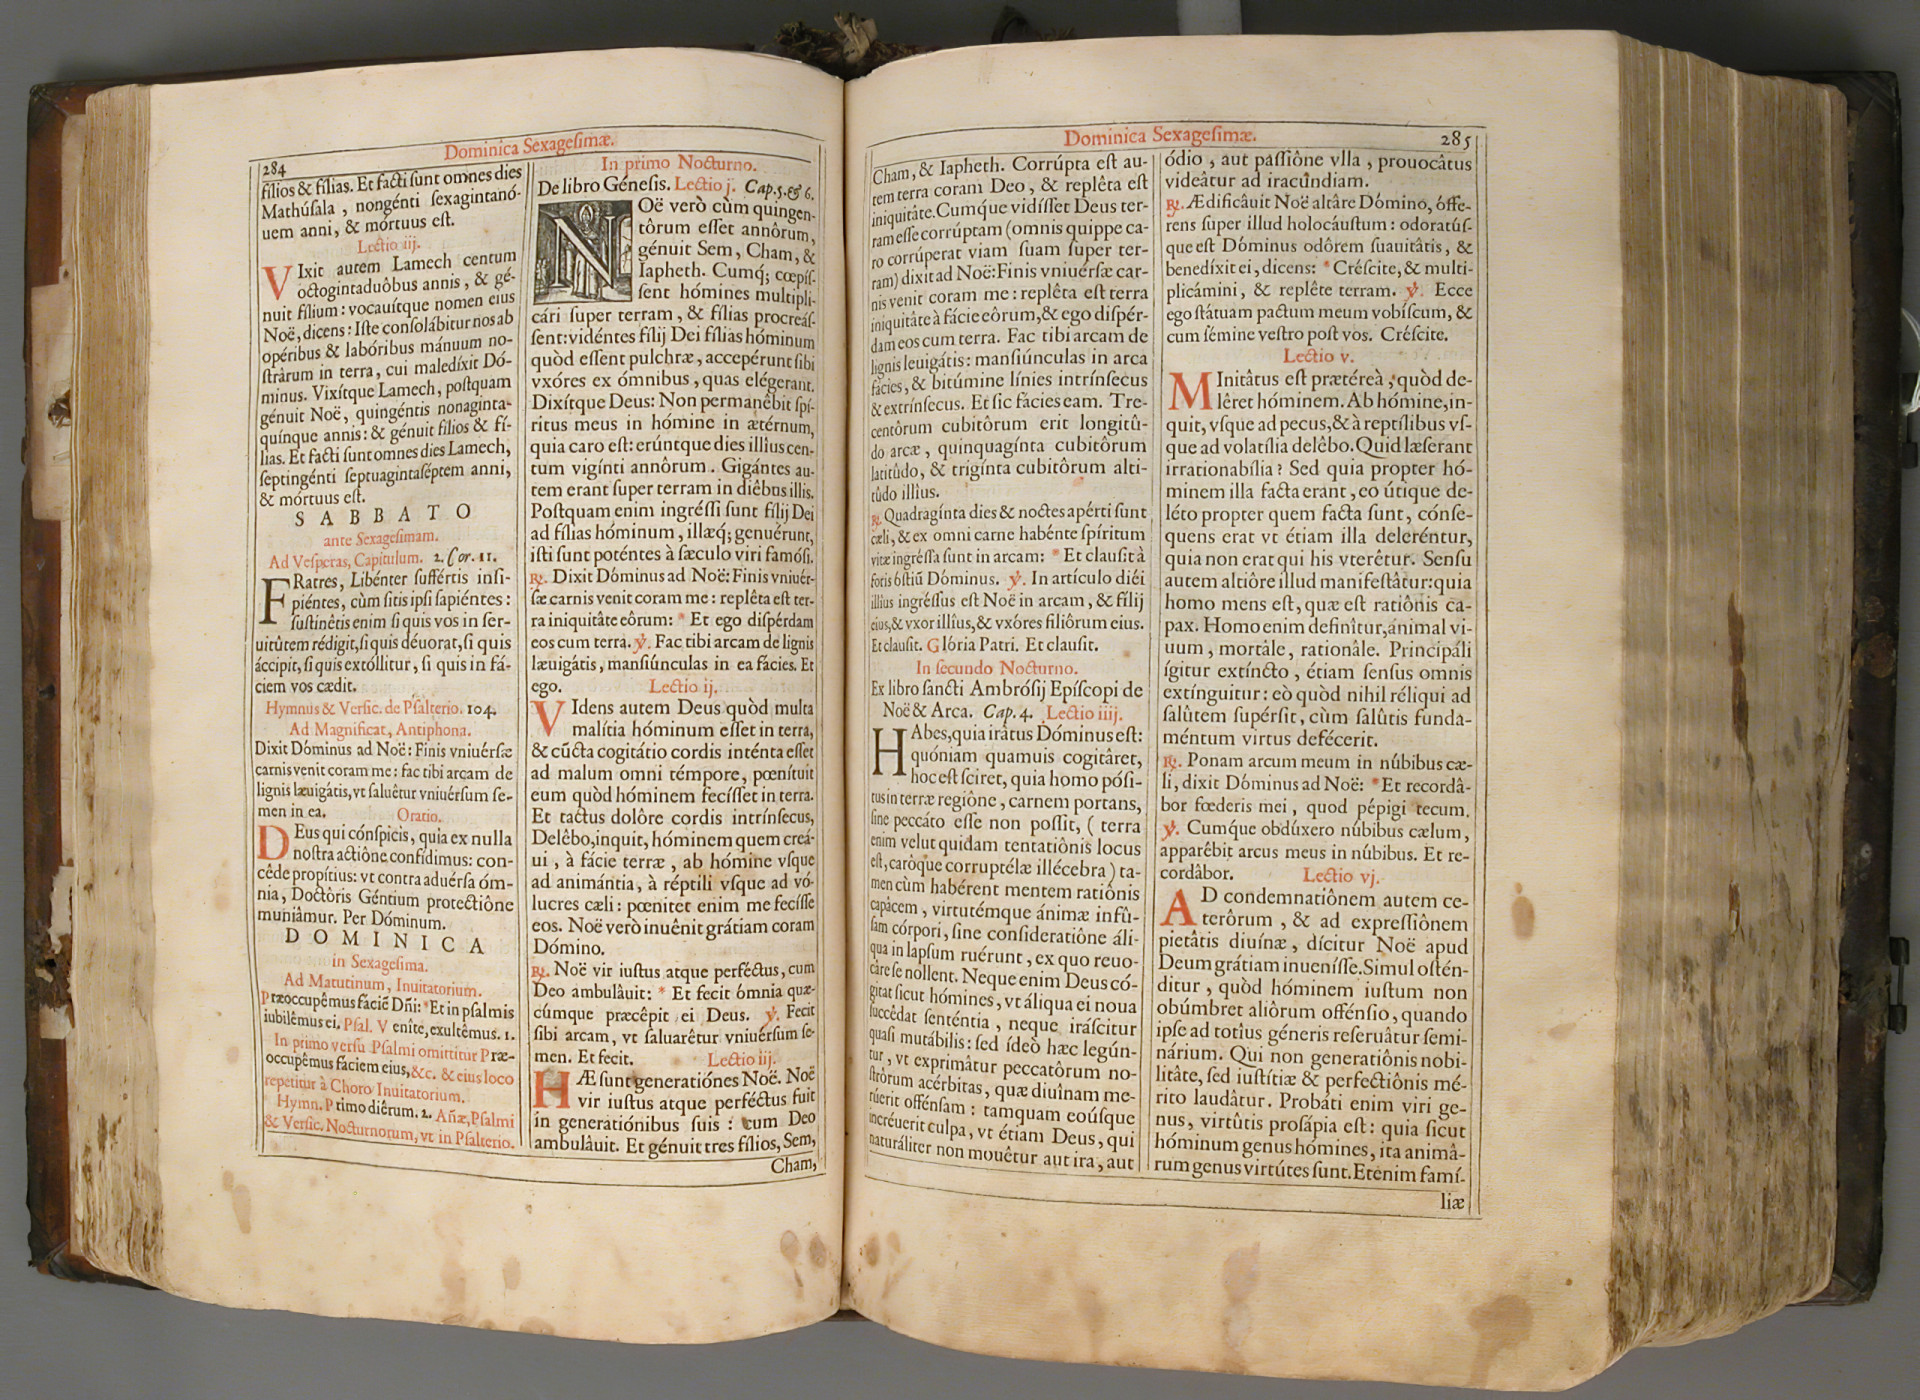 284
Dominica Sexagesimæ.
fílios & fílias. Et facti sunt omnes dies
Mathúsala, nongénti sexagintanó-
uem anni, & mórtuus est.
Lectio iij.
VIxit autem Lamech centum
octogintaduôbus annis, & gé-
nuit fílium: vocauítque nomen eius
Noë, dicens: Iste consolábitur nos ab
opéribus & labóribus mánuum no-
strârum in terra, cui maledíxit Dó-
minus. Vixítque Lamech, postquam
génuit Noë, quingéntis nonaginta-
quínque annis: & génuit fílios & fí-
lias. Et facti sunt omnes dies Lamech,
septingénti septuagintaséptem anni,
& mórtuus est.
SABBATO
ante Sexagesimam.
Ad Vesperas, Capitulum. 2. Cor. 11.
FRatres, Libénter suffértis insi-
piéntes, cùm sitis ipsi sapiéntes:
sustinêtis enim si quis vos in ser-
uitûtem rédigit, si quis déuorat, si quis
áccipit, si quis extóllitur, si quis in fá-
ciem vos cædit.
Hymnus & Versic. de Psalterio. 104.
Ad Magnificat, Antiphona.
Dixit Dóminus ad Noë: Finis vniuérsæ
carnis venit coram me: fac tibi arcam de
lignis læuigátis, vt saluêtur vniuérsum se-
men in ea. Oratio.
DEus qui cónspicis, quia ex nulla
nostra actiône confídimus: con-
cêde propítius: vt contra aduérsa óm-
nia, Doctóris Géntium protectiône
muniâmur. Per Dóminum.
DOMINICA
in Sexagesima.
Ad Matutinum, Inuitatorium.
Præoccupêmus faciẽ Dñi: * Et in psalmis
iubilêmus ei. Psal. Veníte, exultêmus. 1.
In primo versu Psalmi omittitur Præ-
occupêmus fáciem eius, &c. & eius loco
repetitur à Choro Inuitatorium.
Hymn. Primo diêrum. 2. Añæ, Psalmi
& Versic. Nocturnorum, vt in Psalterio.
In primo Nocturno.
De libro Génesis. Lectio j. Cap. 5. & 6.
NOë verò cùm quingen-
tôrum esset annôrum,
génuit Sem, Cham, &
Iapheth. Cumq; cœpís-
sent hómines multipli-
cári super terram, & fílias procreás-
sent: vidéntes fílij Dei fílias hóminum
quòd essent pulchræ, accepérunt sibi
vxóres ex ómnibus, quas elégerant.
Dixítque Deus: Non permanêbit spí-
ritus meus in hómine in ætérnum,
quia caro est: erúntque dies illíus cen-
tum vigínti annôrum. Gigántes au-
tem erant super terram in diêbus illis.
Postquam enim ingréssi sunt fílij Dei
ad fílias hóminum, illæq; genuérunt,
isti sunt poténtes à sæculo viri famósi.
℟. Dixit Dóminus ad Noë: Finis vniuér-
sæ carnis venit coram me: replêta est ter-
ra iniquitâte eôrum: * Et ego dispérdam
eos cum terra. ℣. Fac tibi arcam de lignis
læuigátis, mansiúnculas in ea fácies. Et
ego. Lectio ij.
VIdens autem Deus quòd multa
malítia hóminum esset in terra,
& cũcta cogitátio cordis inténta esset
ad malum omni témpore, pœnítuit
eum quòd hóminem fecísset in terra.
Et tactus dolôre cordis intrínsecus,
Delêbo, inquit, hóminem quem creá-
ui, à fácie terræ, ab hómine vsque
ad animántia, à réptili vsque ad vó-
lucres cæli: pœnitet enim me fecísse
eos. Noë verò inuênit grátiam coram
Dómino.
℟. Noë vir iustus atque perféctus, cum
Deo ambulâuit: * Et fecit ómnia quæ-
cúmque præcêpit ei Deus. ℣. Fecit
sibi arcam, vt saluarêtur vniuérsum se-
men. Et fecit. Lectio iij.
HÆ sunt generatiónes Noë. Noë
vir iustus atque perféctus fuit
in generatiônibus suis: cum Deo
ambulâuit. Et génuit tres fílios, Sem,
Cham,
Dominica Sexagesimæ.
285
Cham, & Iapheth. Corrúpta est au-
tem terra coram Deo, & replêta est
iniquitâte. Cumque vidísset Deus ter-
ram esse corrúptam (omnis quippe ca-
ro corrúperat viam suam super ter-
ram) dixit ad Noë: Finis vniuérsæ car-
nis venit coram me: replêta est terra
iniquitâte à fácie eôrum, & ego dispér-
dam eos cum terra. Fac tibi arcam de
lignis leuigátis: mansiúnculas in arca
fácies, & bitúmine línies intrínsecus
& extrínsecus. Et sic fácies eam. Tre-
centôrum cubitôrum erit longitû-
do arcæ, quinquagínta cubitôrum
latitûdo, & trigínta cubitôrum alti-
tûdo illíus.
℟. Quadragínta dies & noctes apérti sunt
cæli, & ex omni carne habénte spíritum
vitæ ingréssa sunt in arcam: * Et clausit à
foris óstiũ Dóminus. ℣. In artículo diéi
illíus ingréssus est Noë in arcam, & fílij
eius, & vxor illíus, & vxóres filiôrum eius.
Et clausit. Glória Patri. Et clausit.
In secundo Nocturno.
Ex libro sancti Ambrósij Epíscopi de
Noë & Arca. Cap. 4. Lectio iiij.
HAbes, quia irâtus Dóminus est:
quóniam quamuis cogitâret,
hoc est sciret, quia homo pósi-
tus in terræ regiône, carnem portans,
sine peccáto esse non possit, (terra
enim velut quidam tentatiônis locus
est, carôque corruptélæ illécebra) ta-
men cùm habérent mentem ratiônis
capácem, virtutémque ánimæ infû-
sam córpori, sine consideratiône áli-
qua in lapsum ruérunt, ex quo reuo-
câre se nollent. Neque enim Deus có-
gitat sicut hómines, vt áliqua ei noua
succêdat senténtia, neque iráscitur
quasi mutábilis: sed ídeò hæc legún-
tur, vt exprimâtur peccatôrum no-
strôrum acérbitas, quæ diuînam me-
rúerit offénsam: tamquam eoúsque
increúerit culpa, vt étiam Deus, qui
naturáliter non mouêtur aut ira, aut
ódio, aut passiône vlla, prouocâtus
videâtur ad iracúndiam.
℟. Ædificâuit Noë altâre Dómino, óffe-
rens super illud holocáustum: odoratús-
que est Dóminus odôrem suauitâtis, &
benedíxit ei, dicens: * Créscite, & multi-
plicámini, & replête terram. ℣. Ecce
ego státuam pactum meum vobíscum, &
cum sémine vestro post vos. Créscite.
Lectio v.
MInitâtus est prætéreà, quòd de-
lêret hóminem. Ab hómine, in-
quit, vsque ad pecus, & à reptílibus vs-
que ad volatília delêbo. Quid læserant
irrationabília? Sed quia propter hó-
minem illa facta erant, eo útique de-
léto propter quem facta sunt, cónse-
quens erat vt étiam illa deleréntur,
quia non erat qui his vterêtur. Sensu
autem altiôre illud manifestâtur: quia
homo mens est, quæ est ratiônis ca-
pax. Homo enim definîtur, ánimal vi-
uum, mortále, rationâle. Principáli
ígitur extíncto, étiam sensus omnis
extínguitur: eò quòd nihil réliqui ad
salûtem supérsit, cùm salûtis funda-
méntum virtus defécerit.
℟. Ponam arcum meum in núbibus cæ-
li, dixit Dóminus ad Noë: * Et recordâ-
bor fœderis mei, quod pépigi tecum.
℣. Cumque obdúxero núbibus cælum,
apparébit arcus meus in núbibus. Et re-
cordâbor. Lectio vj.
AD condemnatiônem autem ce-
terôrum, & ad expressiônem
pietâtis diuínæ, dícitur Noë apud
Deum grátiam inueníssse. Simul ostén-
ditur, quòd hóminem iustum non
obúmbret aliôrum offénsio, quando
ipse ad totíus géneris reseruâtur semi-
nárium. Qui non generatiônis nobi-
litâte, sed iustítiæ & perfectiônis mé-
rito laudâtur. Probáti enim viri ge-
nus, virtûtis prosápia est: quia sicut
hóminum genus hómines, ita animâ-
rum genus virtútes sunt. Etenim famí-
liæ